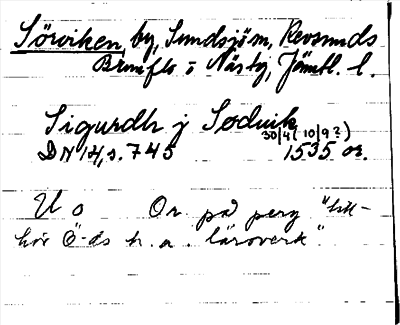 Sörviken, by, Sundsjöm, Revsunds
Brunflo o Näs tg, Jämtl. l.
Sigurdh j Sodwik
30/4 (10/9?)
DN 14, s. 745 1535 or.
U o Or. på perg "till-
hör Ö-ds h. a. läroverk".